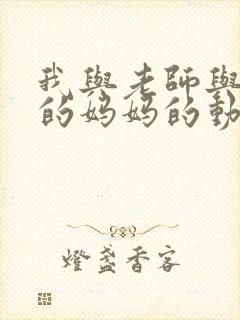 我與老師與
的媽媽的動
燈盞香客